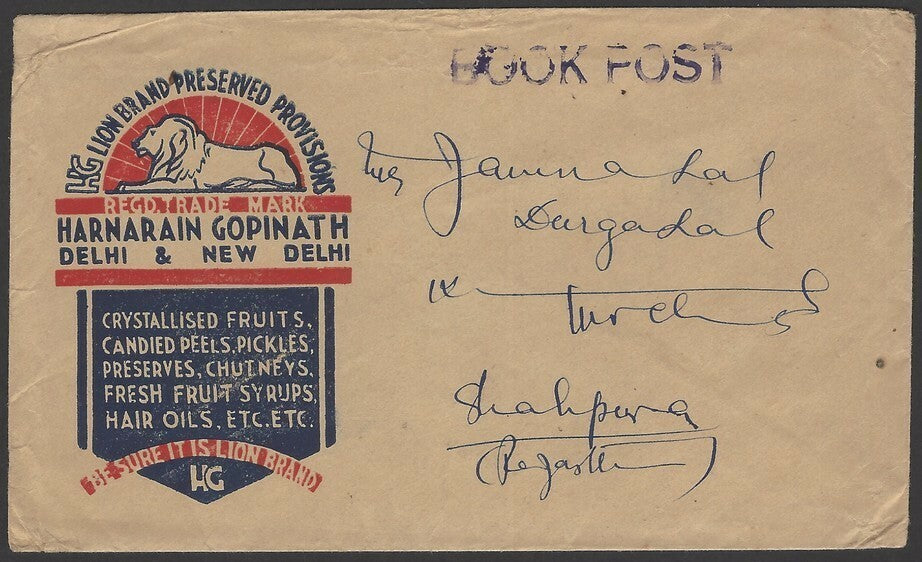 BOOK POST
HG LION BRAND PRESERVED PROVISIONS
REGD. TRADE MARK
HARNARAIN GOPINATH
DELHI & NEW DELHI
CRYSTALLISED FRUITS,
CANDIED PEELS, PICKLES,
PRESERVES, CHUTNEYS,
FRESH FRUIT SYRUPS,
HAIR OILS, ETC. ETC.
BE SURE IT IS LION BRAND
HG
Jamna Lal
Durgalal
Shahpura